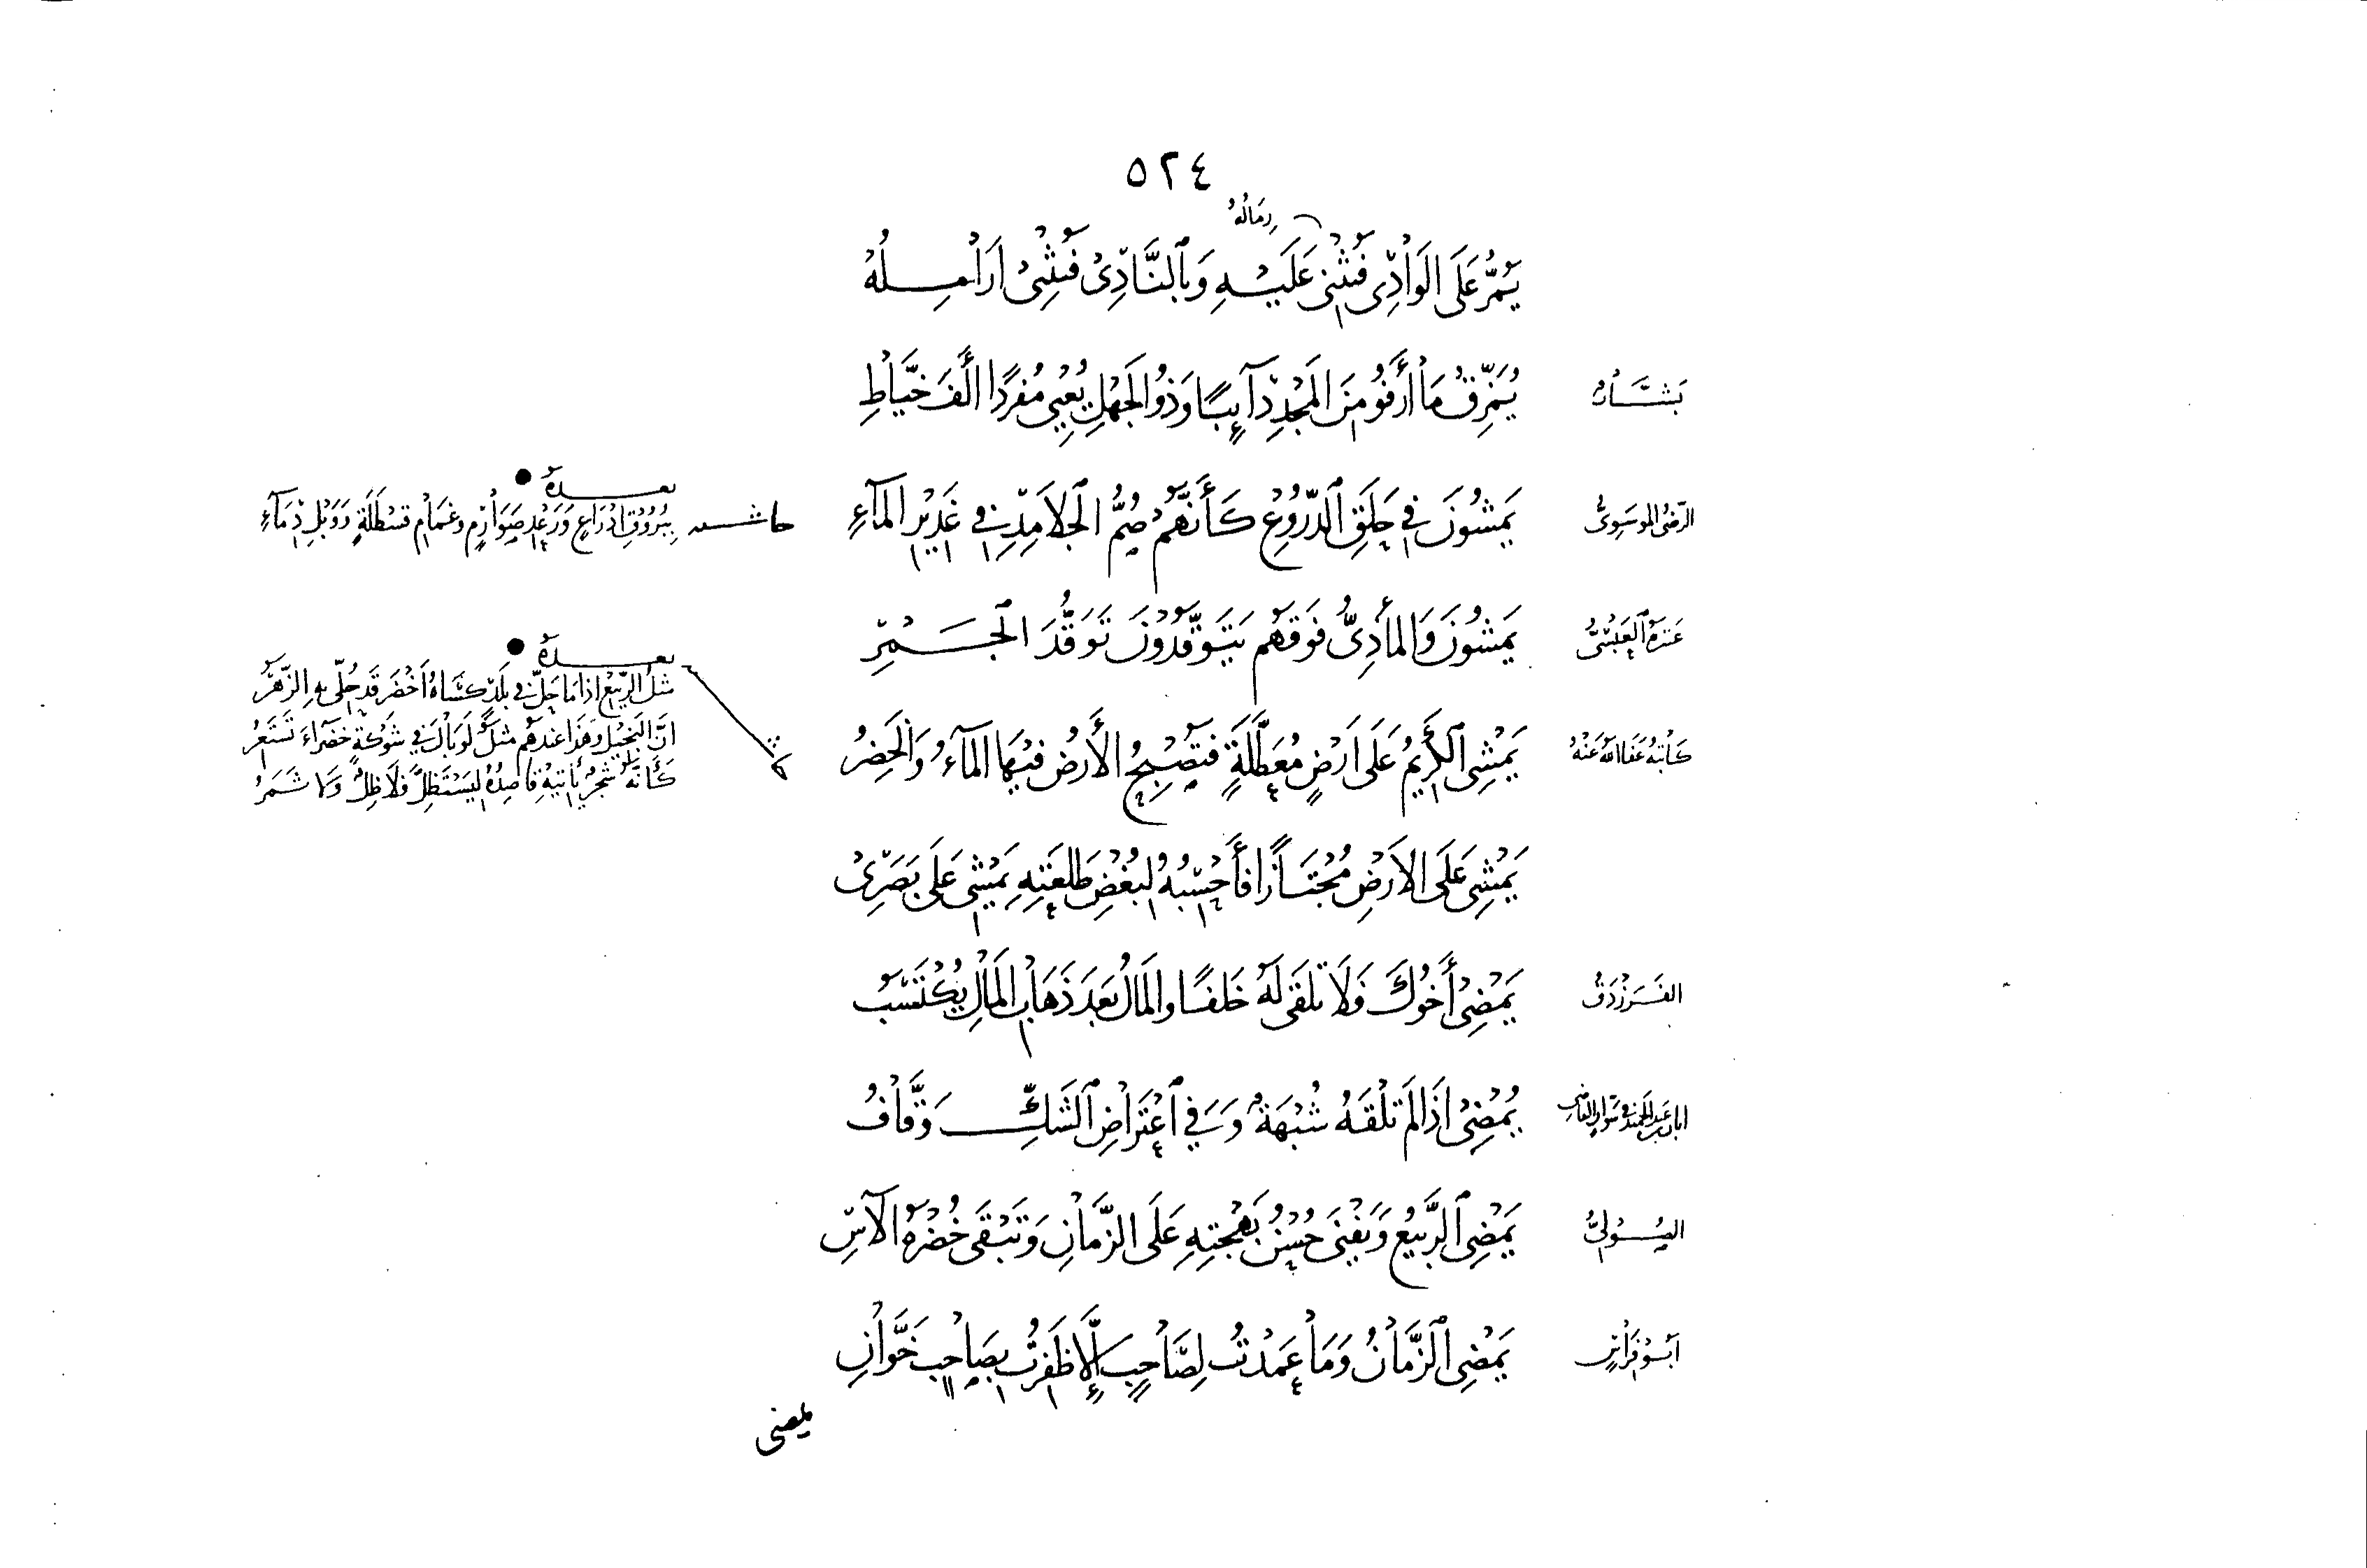 ٥٢٤
رِمَالُهُ
يَمُرُّ عَلَى الوَادِي فَتُثْنِي عَلَيْهِ وَبِالنَّادِي فَتُثْنِي أَرَامِلُهُ
بَشَّارٌ
يُمَزِّقُ مَا أَرْفُو مِنَ المَجْدِ دَائِبًا وَذُو الجَهْلِ يُعْيِي مُفْرَدًا أَلْفَ خَيَّاطِ
الرَّضِيُّ المُوسَوِيُّ
يَمْشُونَ فِي حَلَقِ الدُّرُوعِ كَأَنَّهُمْ صُمُّ الجَلَامِدِ فِي غَدِيرِ المَاءِ
حاشيه
بَعدهُ
بِبُرُوقِ أَدْرَاعٍ وَرَعْدِ صَوَارِمٍ وَغَمَامِ قَسْطَلَةٍ وَوَبْلِ دِمَاءِ
عَنترَةُ العَبْسِيُّ
يَمْشُونَ وَالمَاذِيُّ فَوْقَهُمُ يَتَوَقَّدُونَ تَوَقُّدَ الجَمْرِ
كَاتِبُهُ عَفَا اللهُ عَنْهُ
يَمْشِي الكَرِيمُ عَلَى أَرْضٍ مُعَطَّلَةٍ فَتُصْبِحُ الأَرْضُ فِيهَا المَاءُ وَالخَضِرُ
بَعدهُ
مِثْلُ الرَّبِيعِ إِذَا مَا حَلَّ فِي بَلَدٍ كَسَاهُ أَخْضَرَ قَدْ حُلِّيَ بِهِ الزَّهَرُ
إِنَّ البَخِيلَ وَهَذَا عِنْدَهُمْ مَثَلٌ لَوْ بَالَ فِي شَوْكَةٍ خَضْرَاءَ تَسْتَعِرُ
كَأَنَّهُ شَجَرٌ يَأْتِيهِ قَاصِدُهُ لِيَسْتَظِلَّ فَلَا ظِلٌّ وَلَا ثَمَرُ
يَمْشِي عَلَى الأَرْضِ مُجْتَازًا فَأَحْسِبُهُ لِبُغْضِ طَلْعَتِهِ يَمْشِي عَلَى بَصَرِي
الفَرَزْدَقُ
يَمْضِي أَخُوكَ فَلَا تَلْقَى لَهُ خَلَفًا وَالمَالُ بَعْدَ ذَهَابِ المَالِ يُكْتَسَبُ
يُمْضِي إِذَا لَمْ تَلْقَهُ شُبْهَةٌ وَفِي اعْتِرَاضِ الشَّكِّ وَقَّافُ
الصُّوْلِيُّ
يَمْضِي الرَّبِيعُ وَيَفْنَى حُسْنُ بَهْجَتِهِ عَلَى الزَّمَانِ وَتَبْقَى خُضْرَةُ الآسِ
أَبُو فِرَاسٍ
يَمْضِي الزَّمَانُ وَمَا عَمَدْتُ لِصَاحِبٍ إِلَّا ظَفِرْتُ بِصَاحِبٍ خَوَّانِ
يمضى